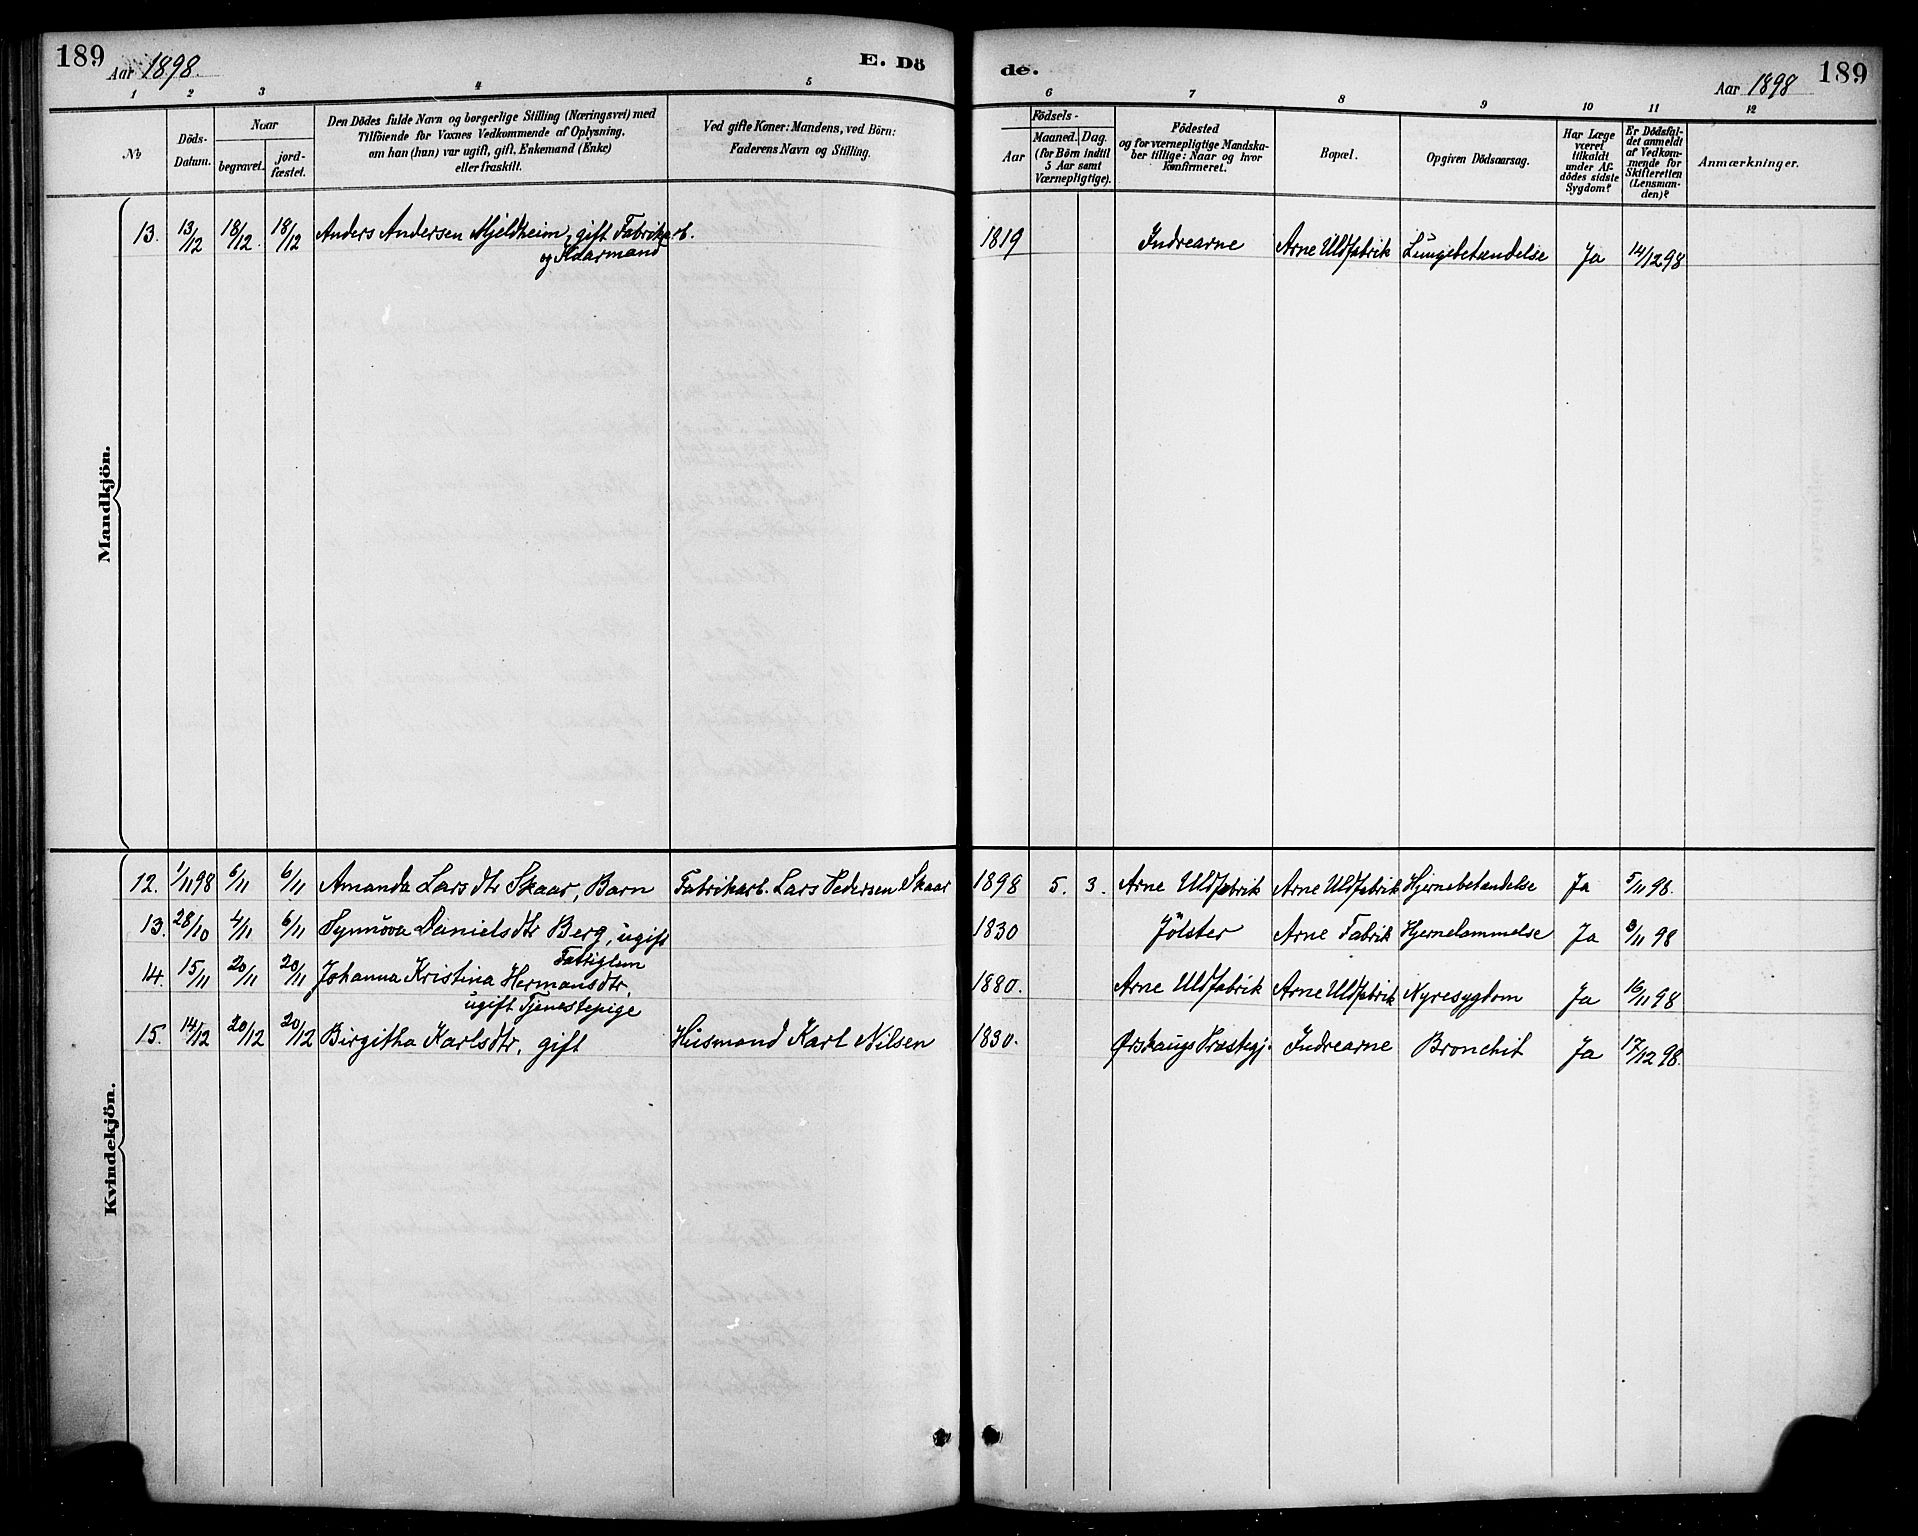 189 Aar 1898. E. Dö de. Aar 1898 189
1 2 3 4 5 6 7 8 9 10 11 12
No
Döds-Datum.
Naar
begravet. jordfæstet.
Den Dödes fulde Navn og borgerlige Stilling (Næringsvei) med
Tilföiende for Voxnes Vedkommende af Oplysning,
om han (hun) var ugift, gift, Enkemand (Enke)
eller fraskilt.
Ved gifte Koner: Mandens, ved Börn:
Faderens Navn og Stilling.
Födsels-
Aar
Maaned. Dag.
(for Börn indtil
5 Aar samt
Værnepligtige).
Födested
og for værnepligtige Mandskaber tillige: Naar og hvor
konfirmeret.
Bopæl.
Opgiven Dödsaarsag.
Har Læge
været
tilkaldt
under Afdödes sidste
Sygdom?
Er Dödsfaldet anmeldt
af Vedkommende for
Skifteretten
(Lensmanden)?
Anmærkninger.
Mandkjön.
13. 13/12 18/12 18/12 Anders Andersen Mjeldheim, gift Fabrikarb. 1819 Indrearne Arne Uldfabrik Lungebetændelse Ja 14/12 98
og Kaarmand
Kvindekjön.
12. 1/11 98 6/11 6/11 Amanda Larsdtr Skaar, Barn Fabrikarb. Lars Pedersen Skaar 1898 5. 3. Arne Uldfabrik Arne Uldfabrik Hjernebetændelse Ja 5/11 98.
13. 28/10 4/11 6/11 Synnöva Danielsdtr Berg, ugift 1830 Jölster Arne Fabrik Hjernelammelse Ja 3/11 98
Fattiglem
14. 15/11 20/11 20/11 Johanna Kristina Hermansdtr, 1880. Arne Uldfabrik Arne Uldfabrik Nyresygdom Ja 16/11 98
ugift Tjenestepige
15. 14/12 20/12 20/12 Birgitha Karlsdtr, gift Husmand Karl Nilsen 1830. Ørskaugs Præstegj. Indrearne Bronchit Ja 17/12 98.